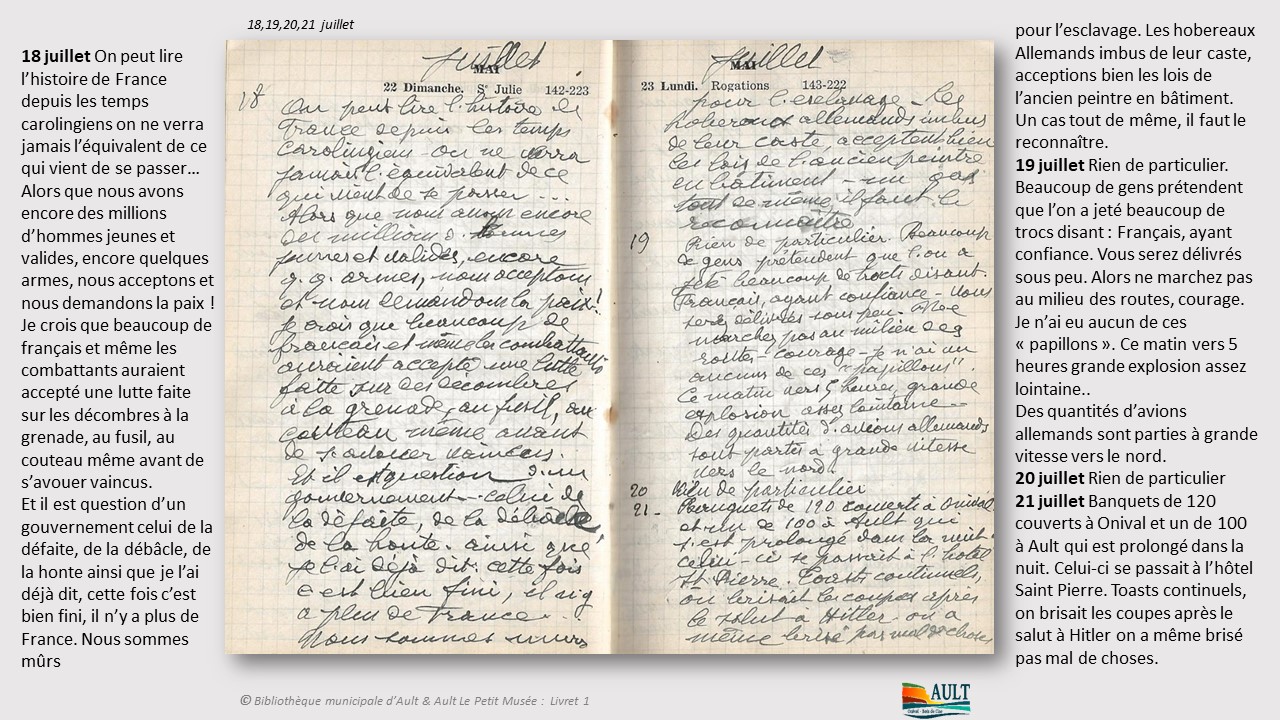 18,19,20,21 juillet
18 juillet On peut lire
l’histoire de France
depuis les temps
carolingiens on ne verra
jamais l’équivalent de ce
qui vient de se passer…
Alors que nous avons
encore des millions
d’hommes jeunes et
valides, encore quelques
armes, nous acceptons et
nous demandons la paix !
Je crois que beaucoup de
français et même les
combattants auraient
accepté une lutte faite
sur les décombres à la
grenade, au fusil, au
couteau même avant de
s’avouer vaincus.
Et il est question d’un
gouvernement celui de la
défaite, de la débâcle, de
la honte ainsi que je l’ai
déjà dit, cette fois c’est
bien fini, il n’y a plus de
France. Nous sommes
mûrs
Juillet
MAI
22 Dimanche. Ste Julie 142-223
18 On peut lire l'histoire de
France depuis les temps
carolingiens on ne verra
jamais l'équivalent de ce
qui vient de se passer ...
Alors que nous avons encore
des millions d'hommes
jeunes et valides, encore
q.q. armes, nous acceptons
et nous demandons la paix!
Je crois que beaucoup de
français et même les combattants
auraient accepté une lutte
faite sur des décombres
à la grenade, au fusil, au
couteau même avant
de s'avouer vaincus.
Et il est question d'un
gouvernement - celui de
la défaite, de la débâcle,
de la honte. ainsi que
je l'ai déjà dit cette fois
c'est bien fini, il n'y
a plus de France.
Nous sommes mûrs
Juillet
MAI
23 Lundi. Rogations 143-222
pour l'esclavage - Les
hobereaux allemands imbus
de leur caste, acceptent bien
les lois de l'ancien peintre
en bâtiment - un cas
tout de même, il faut le
reconnaître
19 Rien de particulier. Beaucoup
de gens prétendent que l'on a
jeté beaucoup de tracts disant.
Français, ayant confiance - Vous
serez délivrés sous peu. Ne
marchez pas au milieu des
routes - courage - Je n'ai eu
aucuns de ces "papillons".
Ce matin vers 5 heures, grande
explosion assez lointaine --
Des quantités d'avions allemands
sont partis à grande vitesse
vers le nord.
20 Rien de particulier
21 - Banquets de 120 couverts à Onival
et un de 100 à Ault qui
s'est prolongé dans la nuit.
celui-ci se passait à l'hôtel
St Pierre. Toasts continuels,
on brisait les coupes après
le salut à Hitler on a
même brisé pas mal de choses
pour l’esclavage. Les hobereaux
Allemands imbus de leur caste,
acceptions bien les lois de
l’ancien peintre en bâtiment.
Un cas tout de même, il faut le
reconnaître.
19 juillet Rien de particulier.
Beaucoup de gens prétendent
que l’on a jeté beaucoup de
trocs disant : Français, ayant
confiance. Vous serez délivrés
sous peu. Alors ne marchez pas
au milieu des routes, courage.
Je n’ai eu aucun de ces
« papillons ». Ce matin vers 5
heures grande explosion assez
lointaine..
Des quantités d’avions
allemands sont parties à grande
vitesse vers le nord.
20 juillet Rien de particulier
21 juillet Banquets de 120
couverts à Onival et un de 100
à Ault qui est prolongé dans la
nuit. Celui-ci se passait à l’hôtel
Saint Pierre. Toasts continuels,
on brisait les coupes après le
salut à Hitler on a même brisé
pas mal de choses.
© Bibliothèque municipale d’Ault & Ault Le Petit Musée : Livret 1
AULT
Onival - Bois de Cise